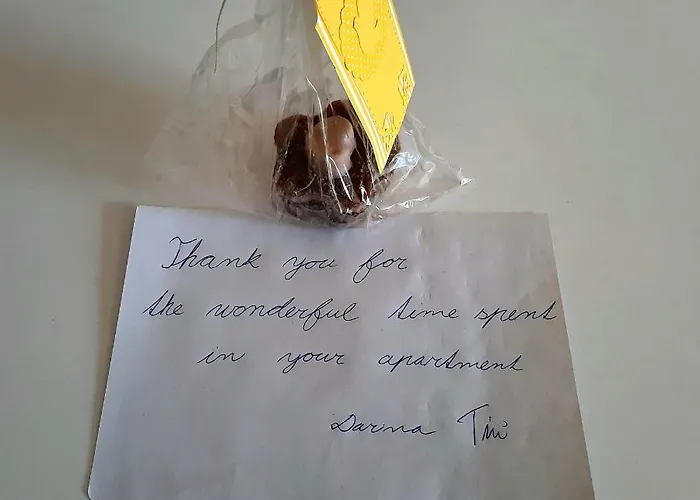 Thank you for
the wonderful time spent
in your apartment
Darina